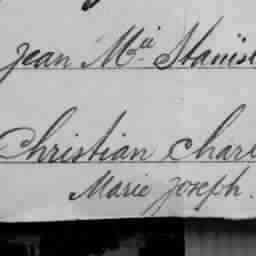 Jean M.ie Stanis
Christian Char
Marie Joseph.